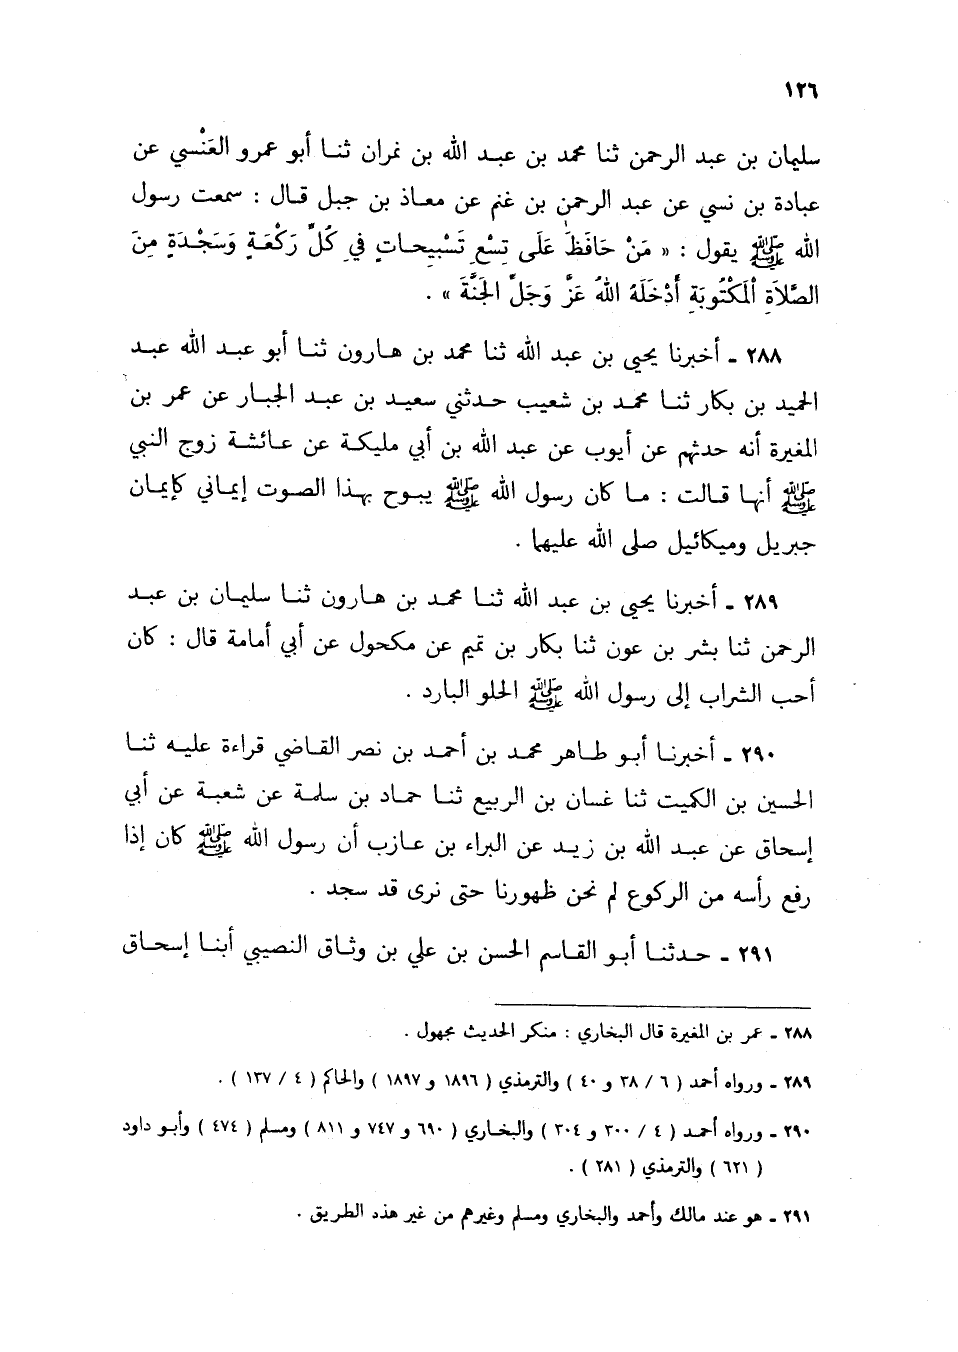 ١٢٦
سليمان بن عبد الرحمن ثنا محمد بن عبد الله بن نمران ثنا أبو عمرو العَنْسي عن
عبادة بن نسي عن عبد الرحمن بن غنم عن معاذ بن جبل قال : سمعت رسول
الله ﷺ يقول : « مَنْ حَافَظَ عَلَى تِسْعِ تَسْبِيحَاتٍ فِي كُلِّ رَكْعَةٍ وَسَجْدَةٍ مِنَ
الصَّلَاةِ الْمَكْتُوبَةِ أَدْخَلَهُ اللهُ عَزَّ وَجَلَّ الجَنَّةَ » .
٢٨٨ ـ أخبرنا يحيى بن عبد الله ثنا محمد بن هارون ثنا أبو عبد الله عبد
الحميد بن بكار ثنا محمد بن شعيب حدثني سعيد بن عبد الجبار عن عمر بن
المغيرة أنه حدثهم عن أيوب عن عبد الله بن أبي مليكة عن عائشة زوج النبي
ﷺ أنها قالت : ما كان رسول الله ﷺ يبوح بهذا الصوت إيماني كإيمان
جبريل وميكائيل صلى الله عليهما .
٢٨٩ ـ أخبرنا يحيى بن عبد الله ثنا محمد بن هارون ثنا سليمان بن عبد
الرحمن ثنا بشر بن عون ثنا بكار بن تميم عن مكحول عن أبي أمامة قال : كان
أحب الشراب إلى رسول الله ﷺ الحلو البارد .
٢٩٠ ـ أخبرنا أبو طاهر محمد بن أحمد بن نصر القاضي قراءة عليه ثنا
الحسين بن الكميت ثنا غسان بن الربيع ثنا حماد بن سلمة عن شعبة عن أبي
إسحاق عن عبد الله بن زيد عن البراء بن عازب أن رسول الله ﷺ كان إذا
رفع رأسه من الركوع لم نحن ظهورنا حتى نرى قد سجد .
٢٩١ ـ حدثنا أبو القاسم الحسن بن علي بن وثاق النصيبي أبنا إسحاق
٢٨٨ ـ عمر بن المغيرة قال البخاري : منكر الحديث مجهول .
٢٨٩ ـ ورواه أحمد ( ٦ / ٣٨ و ٤٠ ) والترمذي ( ١٨٩٦ و ١٨٩٧ ) والحاكم ( ٤ / ١٣٧ ) .
٢٩٠ ـ ورواه أحمد ( ٤ / ٣٠٠ و ٣٠٤ ) والبخاري ( ٦٩٠ و ٧٤٧ و ٨١١ ) ومسلم ( ٤٧٤ ) وأبو داود
( ٦٢١ ) والترمذي ( ٢٨١ ) .
٢٩١ ـ هو عند مالك وأحمد والبخاري ومسلم وغيرهم من غير هذه الطريق .